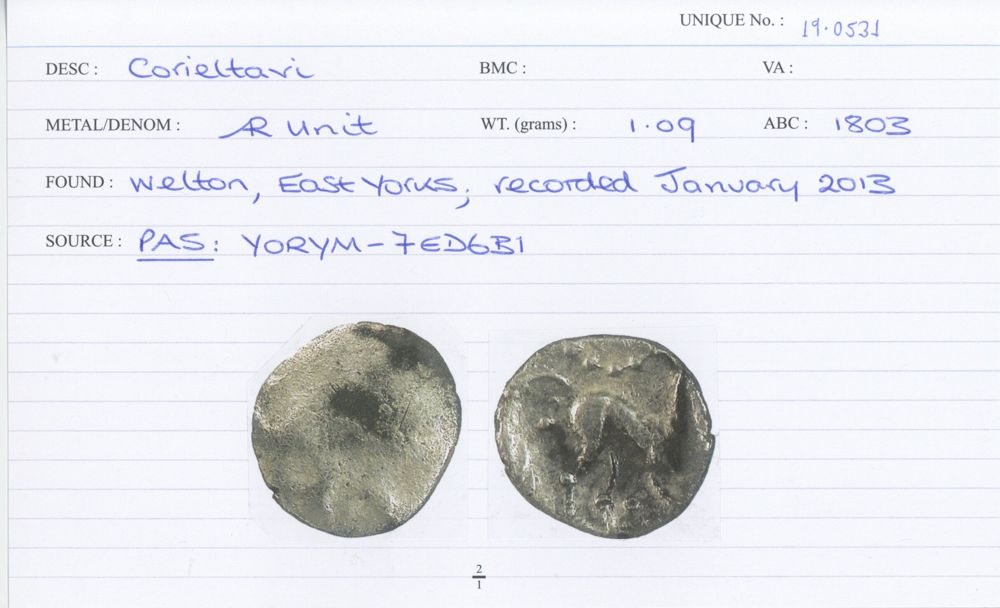 UNIQUE No. : 19.0531
DESC : Corieltavi BMC : VA :
METAL/DENOM : AR Unit WT. (grams) : 1.09 ABC : 1803
FOUND : Welton, East Yorks; recorded January 2013
SOURCE : PAS: YORYM-7ED6B1
2/1